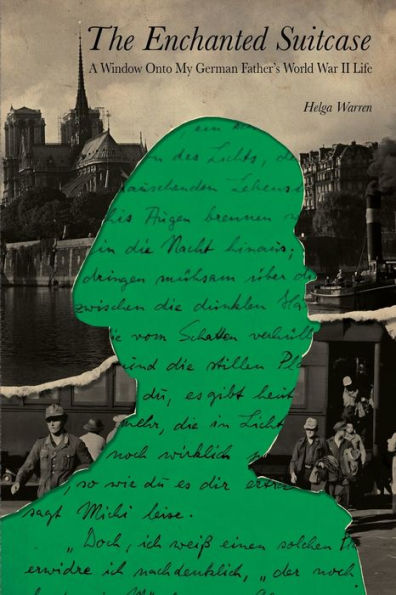 The Enchanted Suitcase
A Window Onto My German Father's World War II Life
Helga Warren
, ein
n des Lichts, de
auschenden Lebens
his Augen brennen
in die Nacht hinaus;
dringen mühsam über d
zwischen die dunklen Hä
e vom Schatten verhüll
und die stillen Pl
du, es gibt heut
mehr, die in Licht
noch wirklich
, so wie du es dir
sagt Michi leise.
„Doch, ich weiß einen solchen
erwidre ich nachdenklich, „der noch